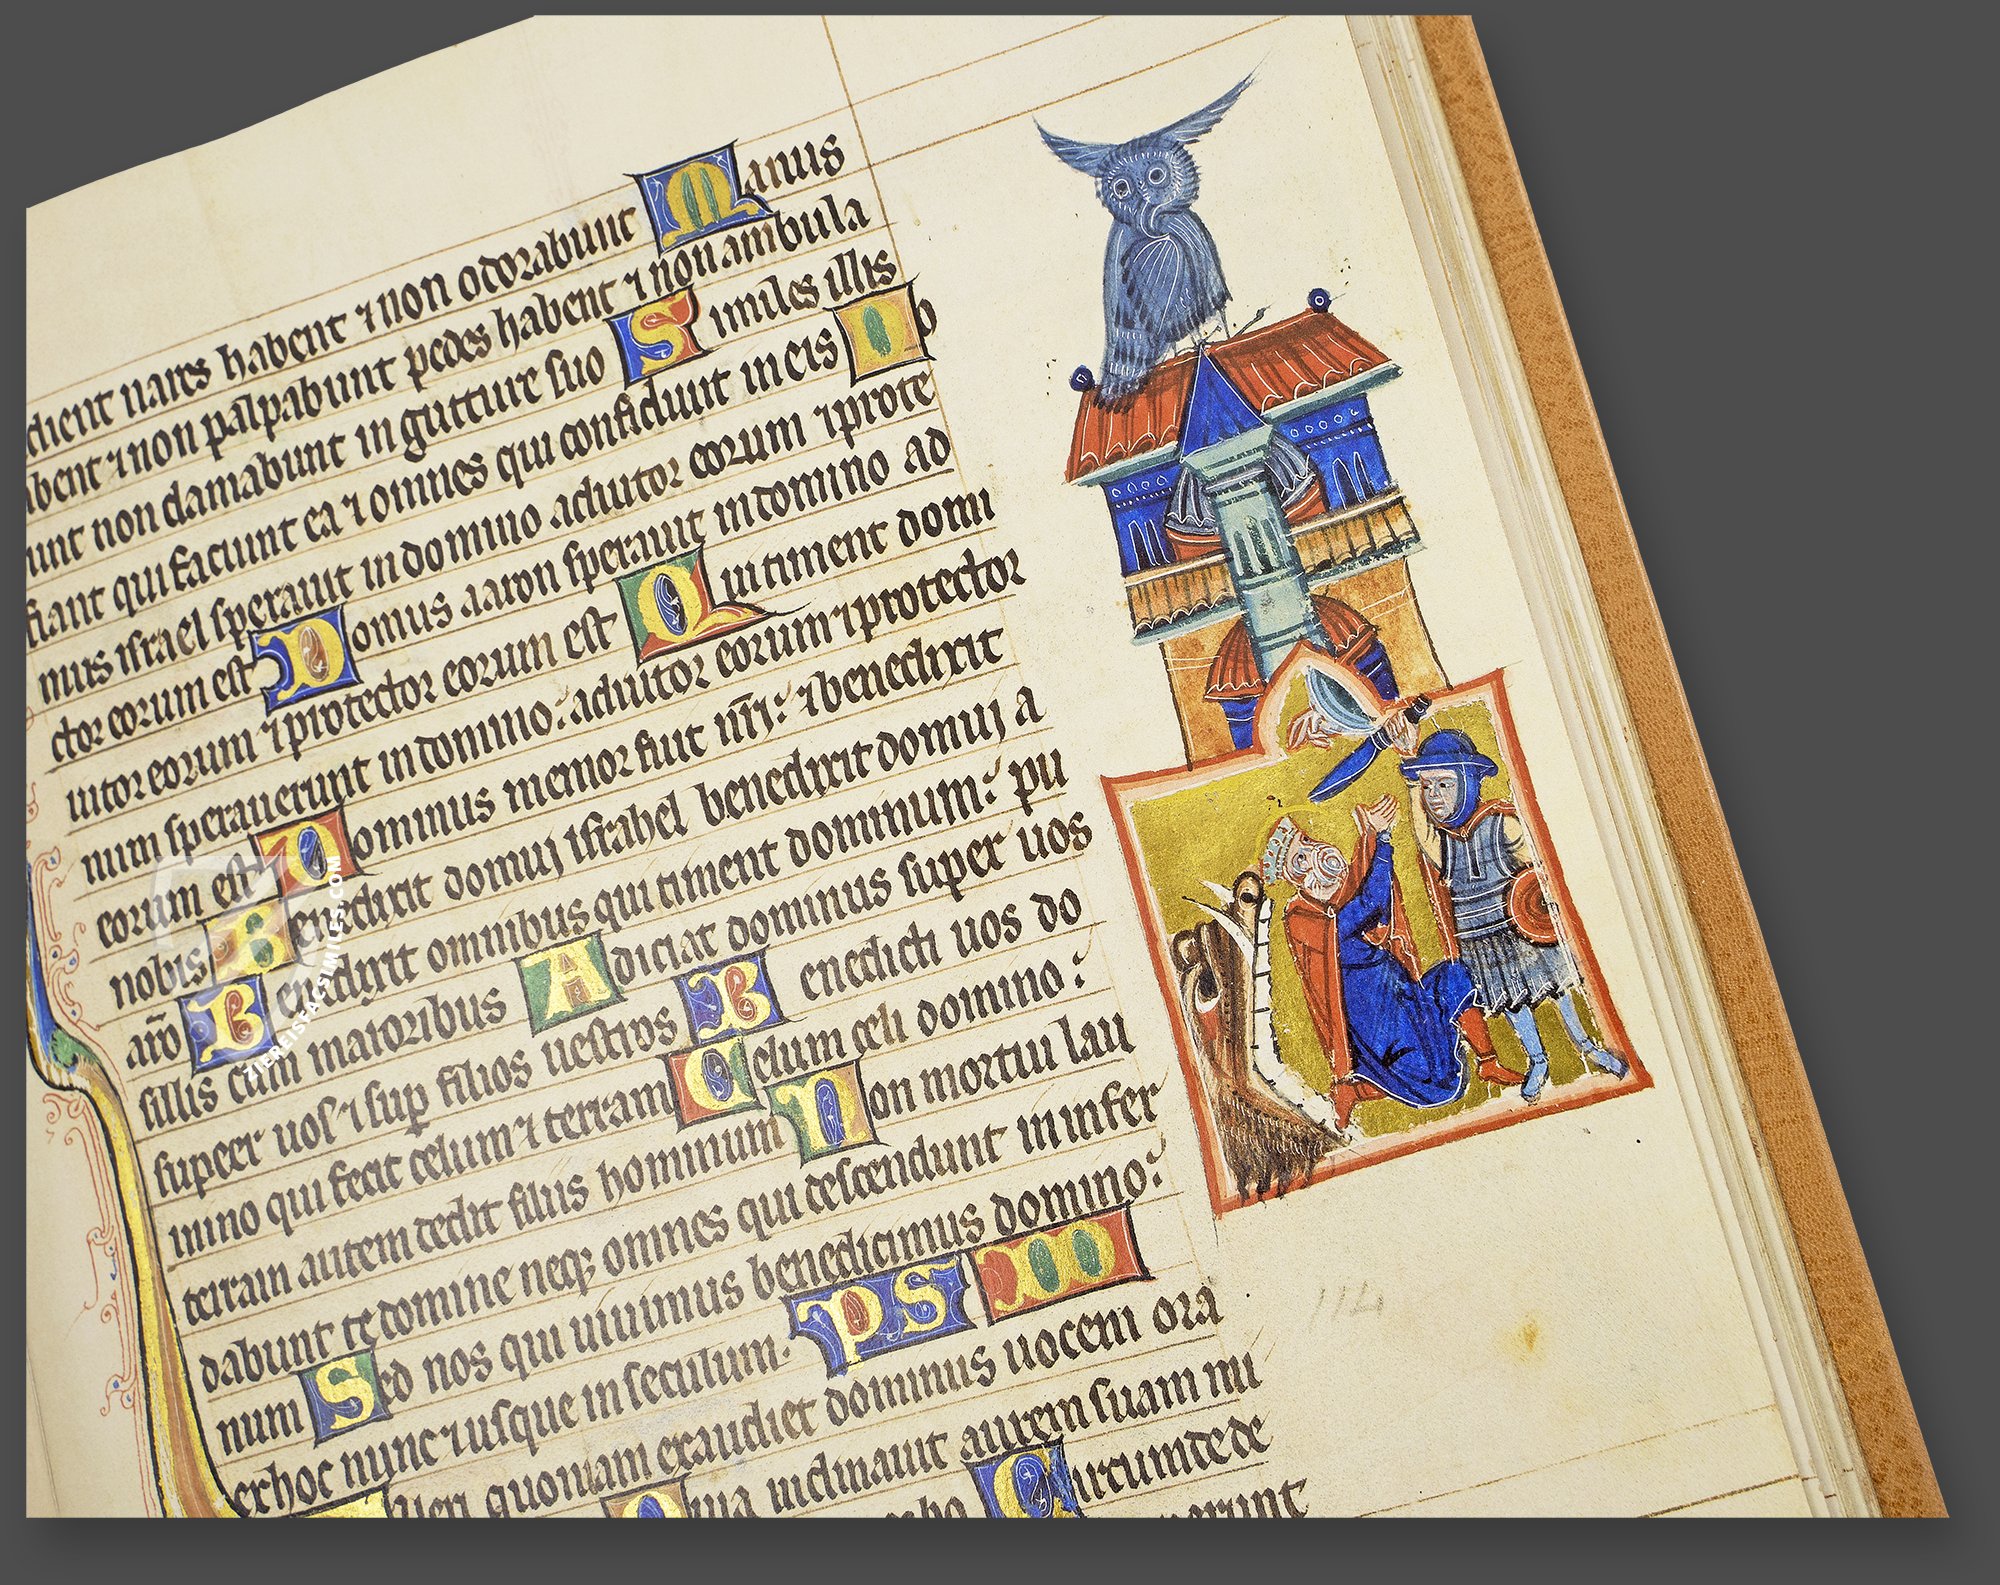 dient nares habent ⁊ non odorabunt Manus
abent ⁊ non palpabunt pedes habent ⁊ non ambula
unt non clamabunt in gutture suo Similes illis
fiant qui faciunt ea ⁊ omnes qui confidunt in eis Do
mus israel sperauit in domino adiutor eorum ⁊ prote
ctor eorum est Domus aaron sperauit in domino ad
iutor eorum ⁊ protector eorum est Qui timent domi
num sperauerunt in domino: adiutor eorum ⁊ protector
eorum est Dominus memor fuit nr̄i: ⁊ benedixit
nobis Benedixit domui israhel benedixit domui a
arō Benedixit omnibus qui timent dominum: pu
sillis cum maioribus Adiciat dominus super uos
super uos ⁊ sup filios uestros Benedicti uos do
mino qui fecit celum ⁊ terram Celum celi domino:
terram autem dedit filiis hominum Non mortui lau
dabunt te domine neq; omnes qui descendunt in infer
num Sed nos qui uiuimus benedicimus domino:
ex hoc nunc ⁊ usque in seculum. PSM
quoniam exaudiet dominus uocem ora
inclinauit aurem suam mi
Circumdede
114
ZIEREISFACSIMILES.COM